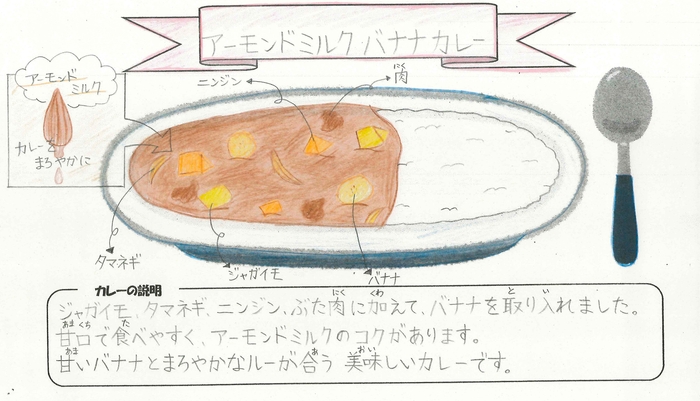 アーモンドミルク・バナナカレー
アーモンド
ミルク
カレーを
まろやかに
ニンジン
肉
にく
タマネギ
ジャガイモ
バナナ
カレーの説明
ジャガイモ、タマネギ、ニンジン、ぶた肉に加えて、バナナを取り入れました。
にく くわ と い
甘口で食べやすく、アーモンドミルクのコクがあります。
あまくち た
甘いバナナとまろやかなルーが合う 美味しいカレーです。
あま あ おい